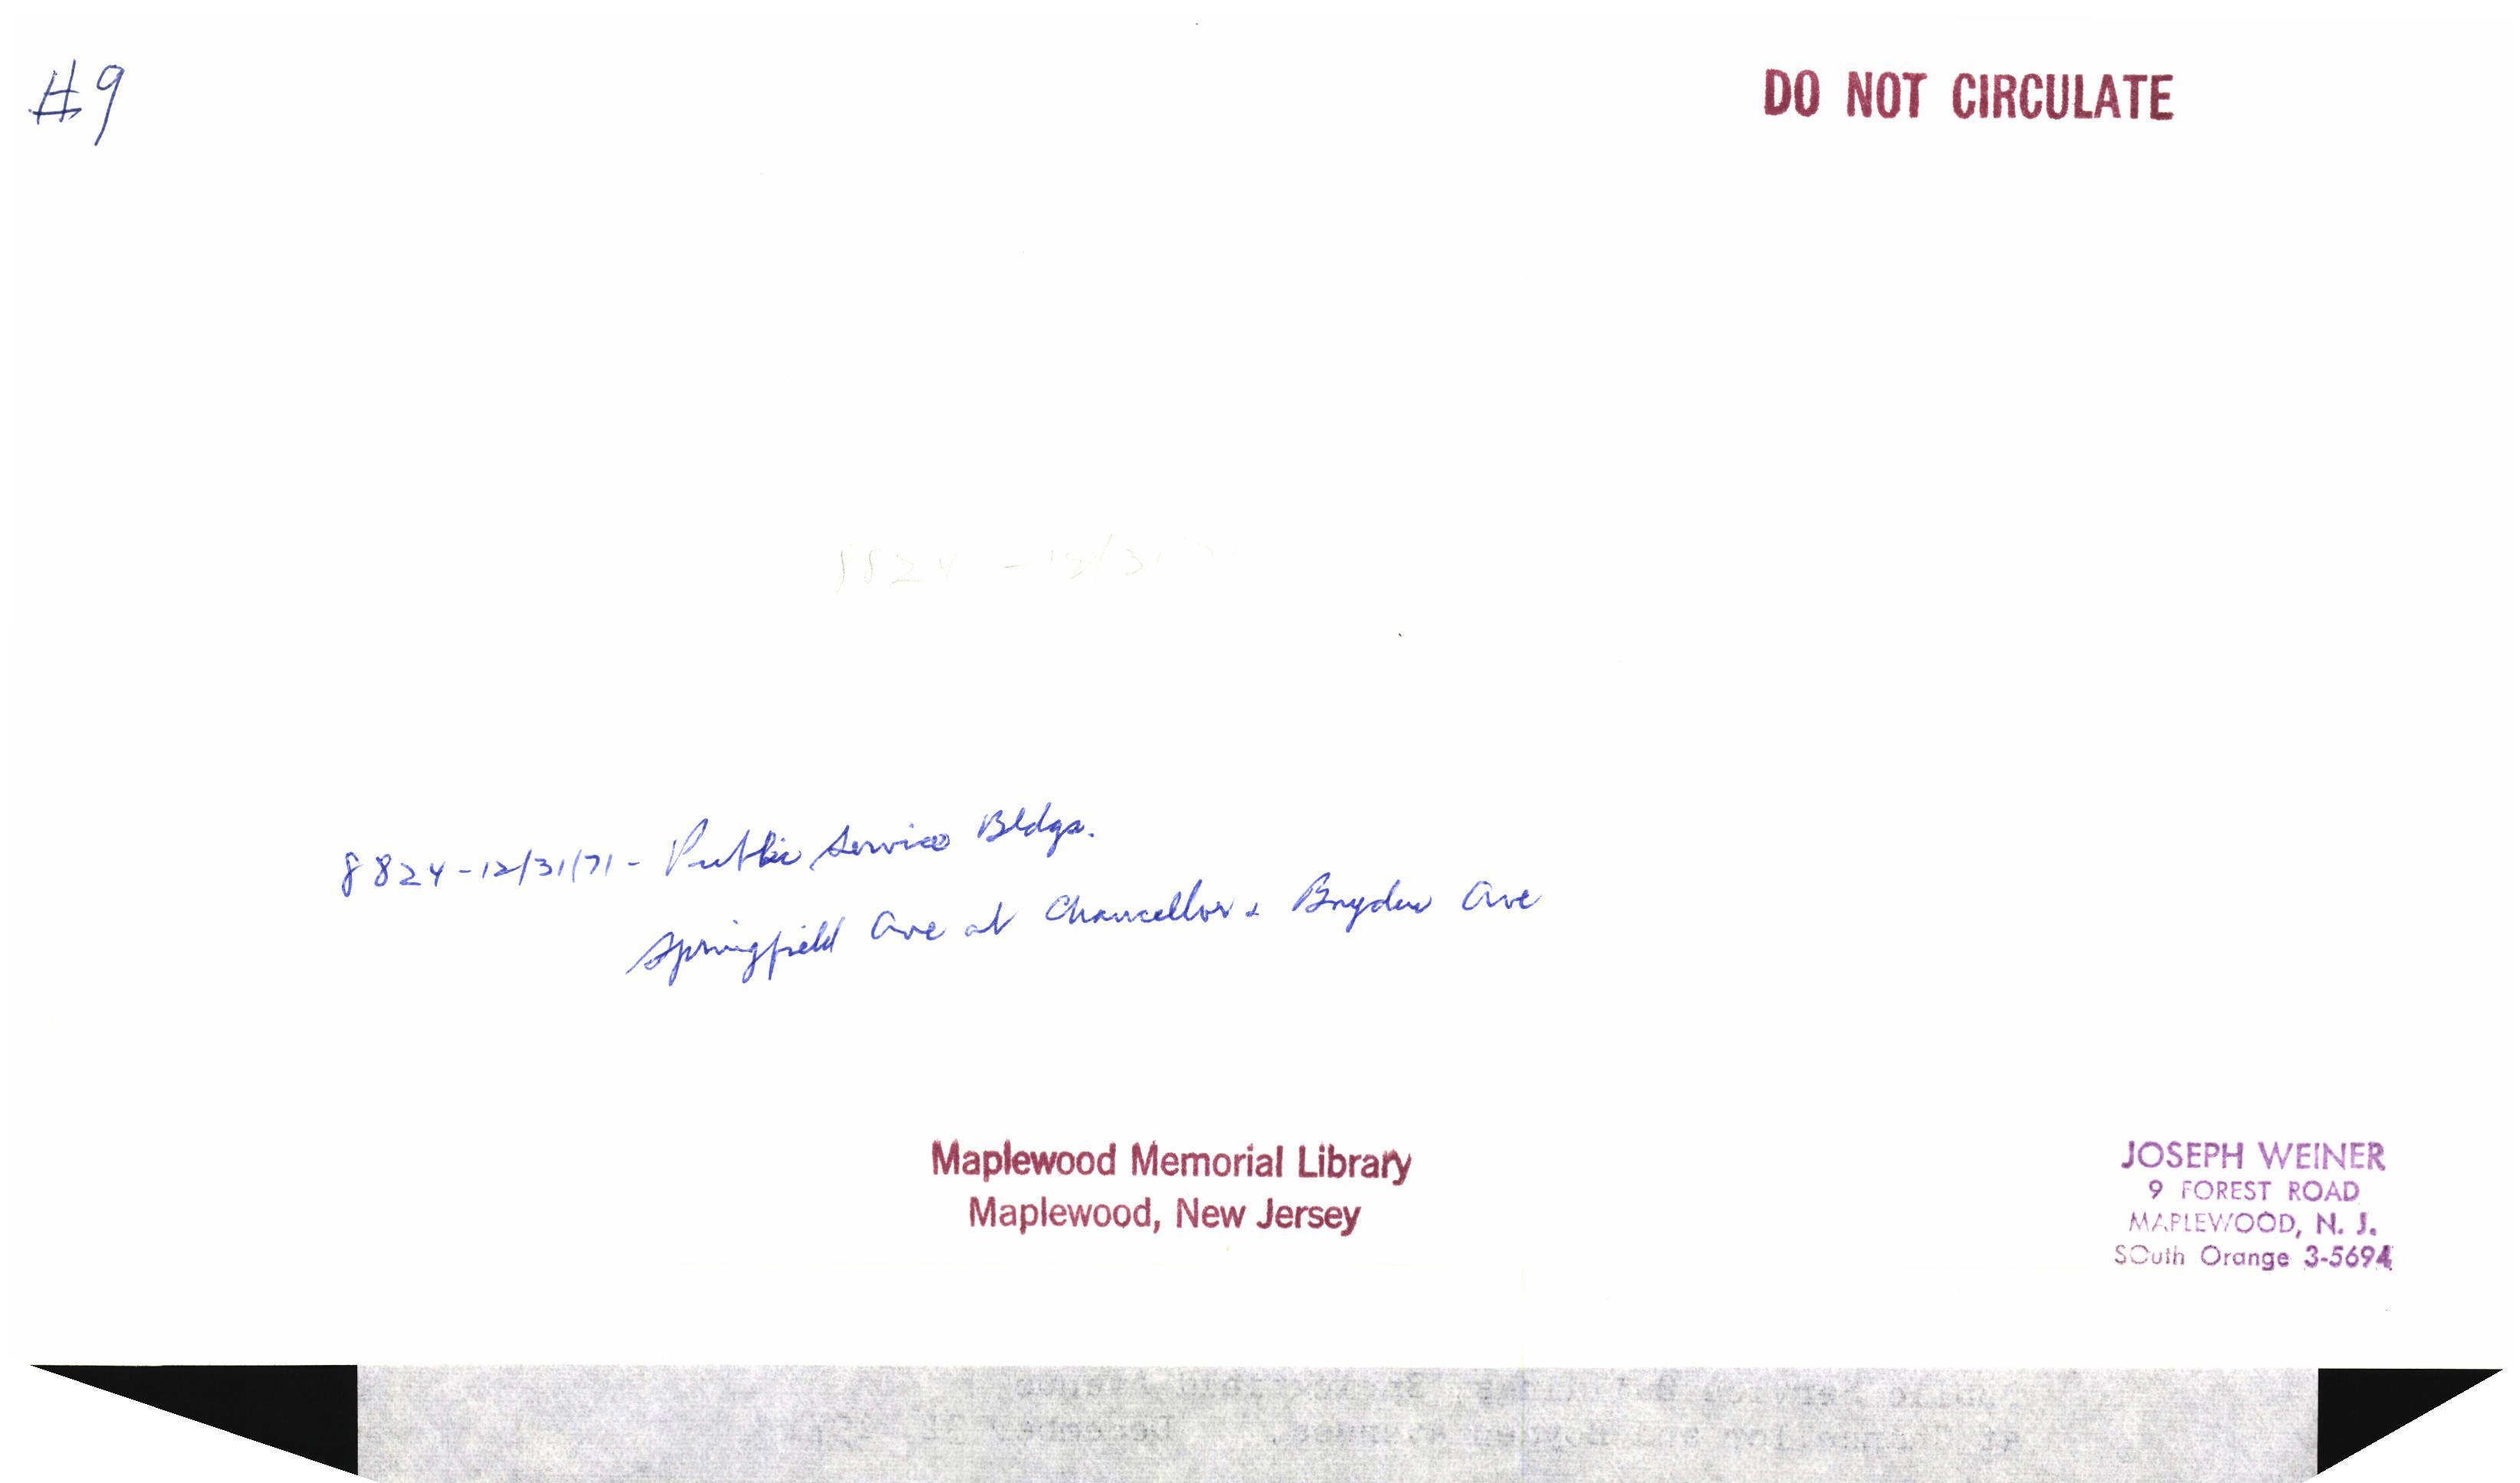 #9
DO NOT CIRCULATE
8824 - 12/31
8824-12/31/71- Public Service Bldgs.
Springfield Ave at Chancellor & Boyden Ave
Maplewood Memorial Library
Maplewood, New Jersey
JOSEPH WEINER
9 FOREST ROAD
MAPLEWOOD, N. J.
SOuth Orange 3-5694